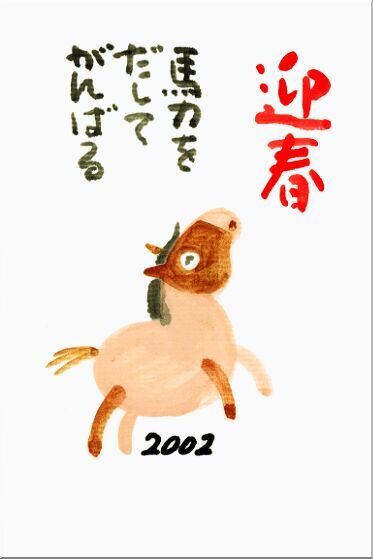 迎春
馬力を
だして
がんばる
2002